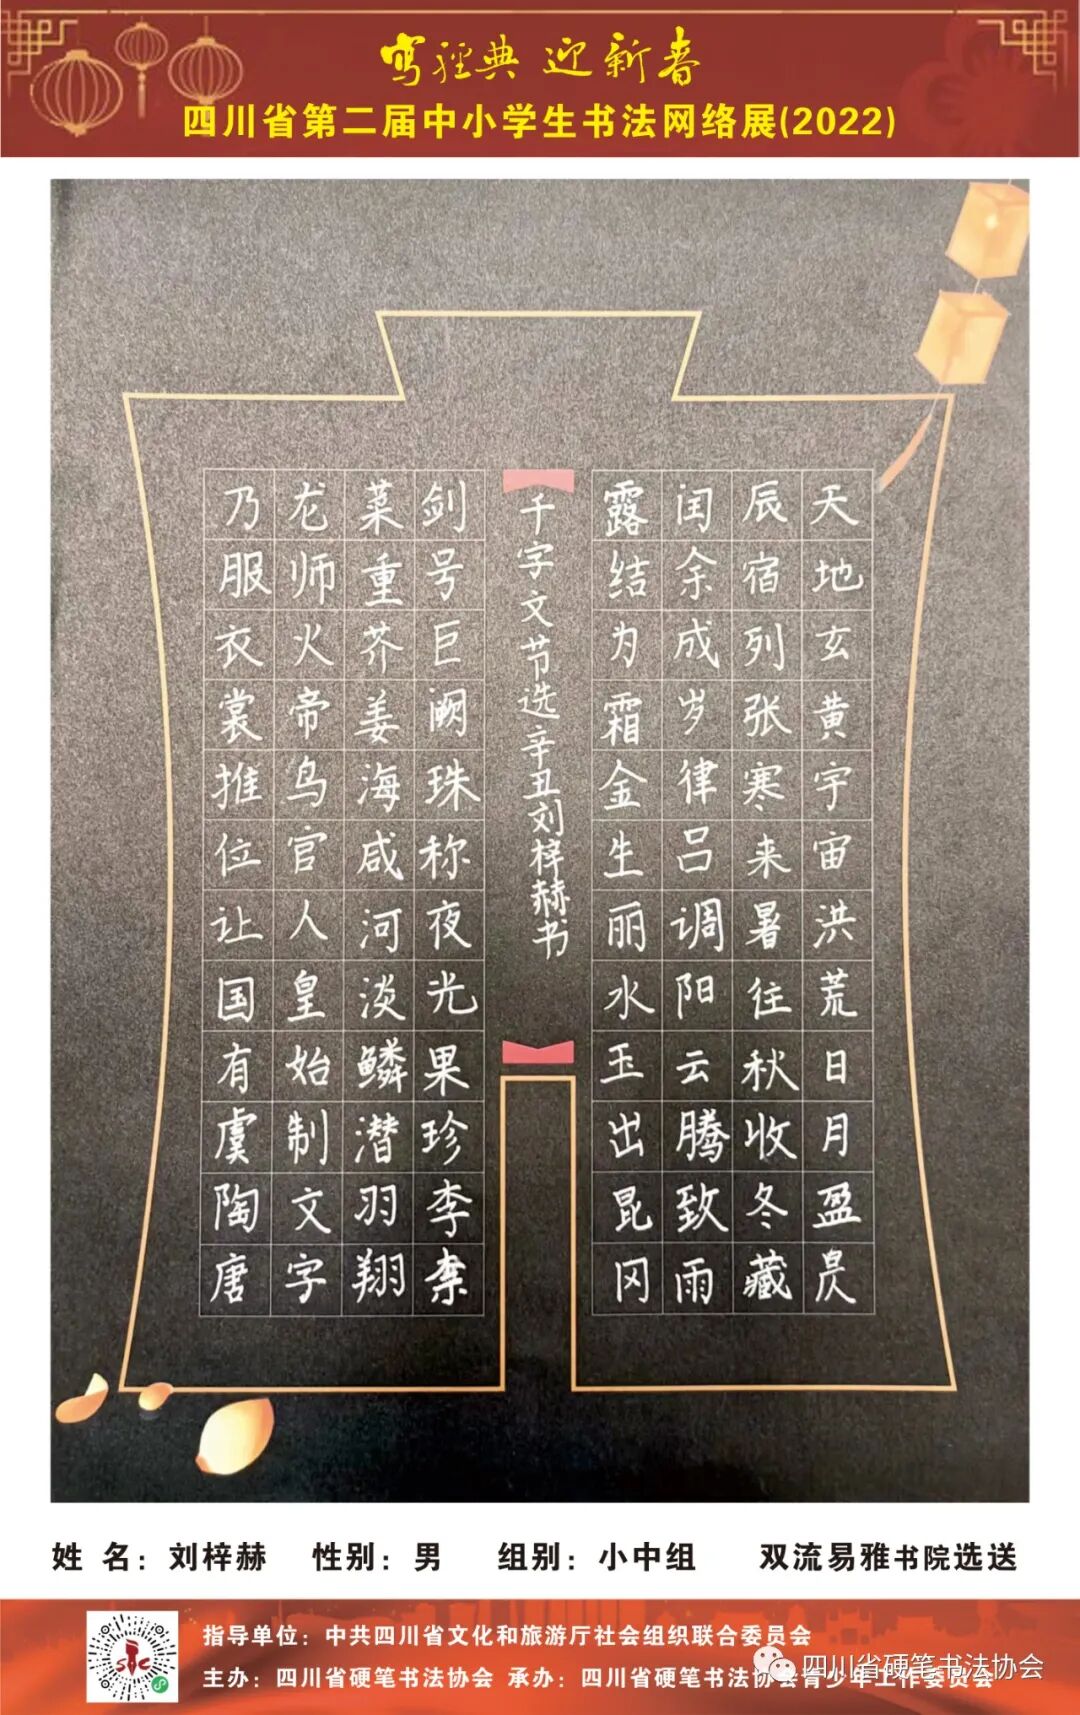 写经典 迎新春
四川省第二届中小学生书法网络展(2022)
天地玄黄宇宙洪荒日月盈昃
辰宿列张寒来暑往秋收冬藏
闰余成岁律吕调阳云腾致雨
露结为霜金生丽水玉出昆冈
千字文节选辛丑刘梓赫书
剑号巨阙珠称夜光果珍李柰
菜重芥姜海咸河淡鳞潜羽翔
龙师火帝鸟官人皇始制文字
乃服衣裳推位让国有虞陶唐
姓 名：刘梓赫 性别：男 组别：小中组 双流易雅书院选送
指导单位：中共四川省文化和旅游厅社会组织联合委员会
主办：四川省硬笔书法协会 承办：四川省硬笔书法协会青少年工作委员会
四川省硬笔书法协会